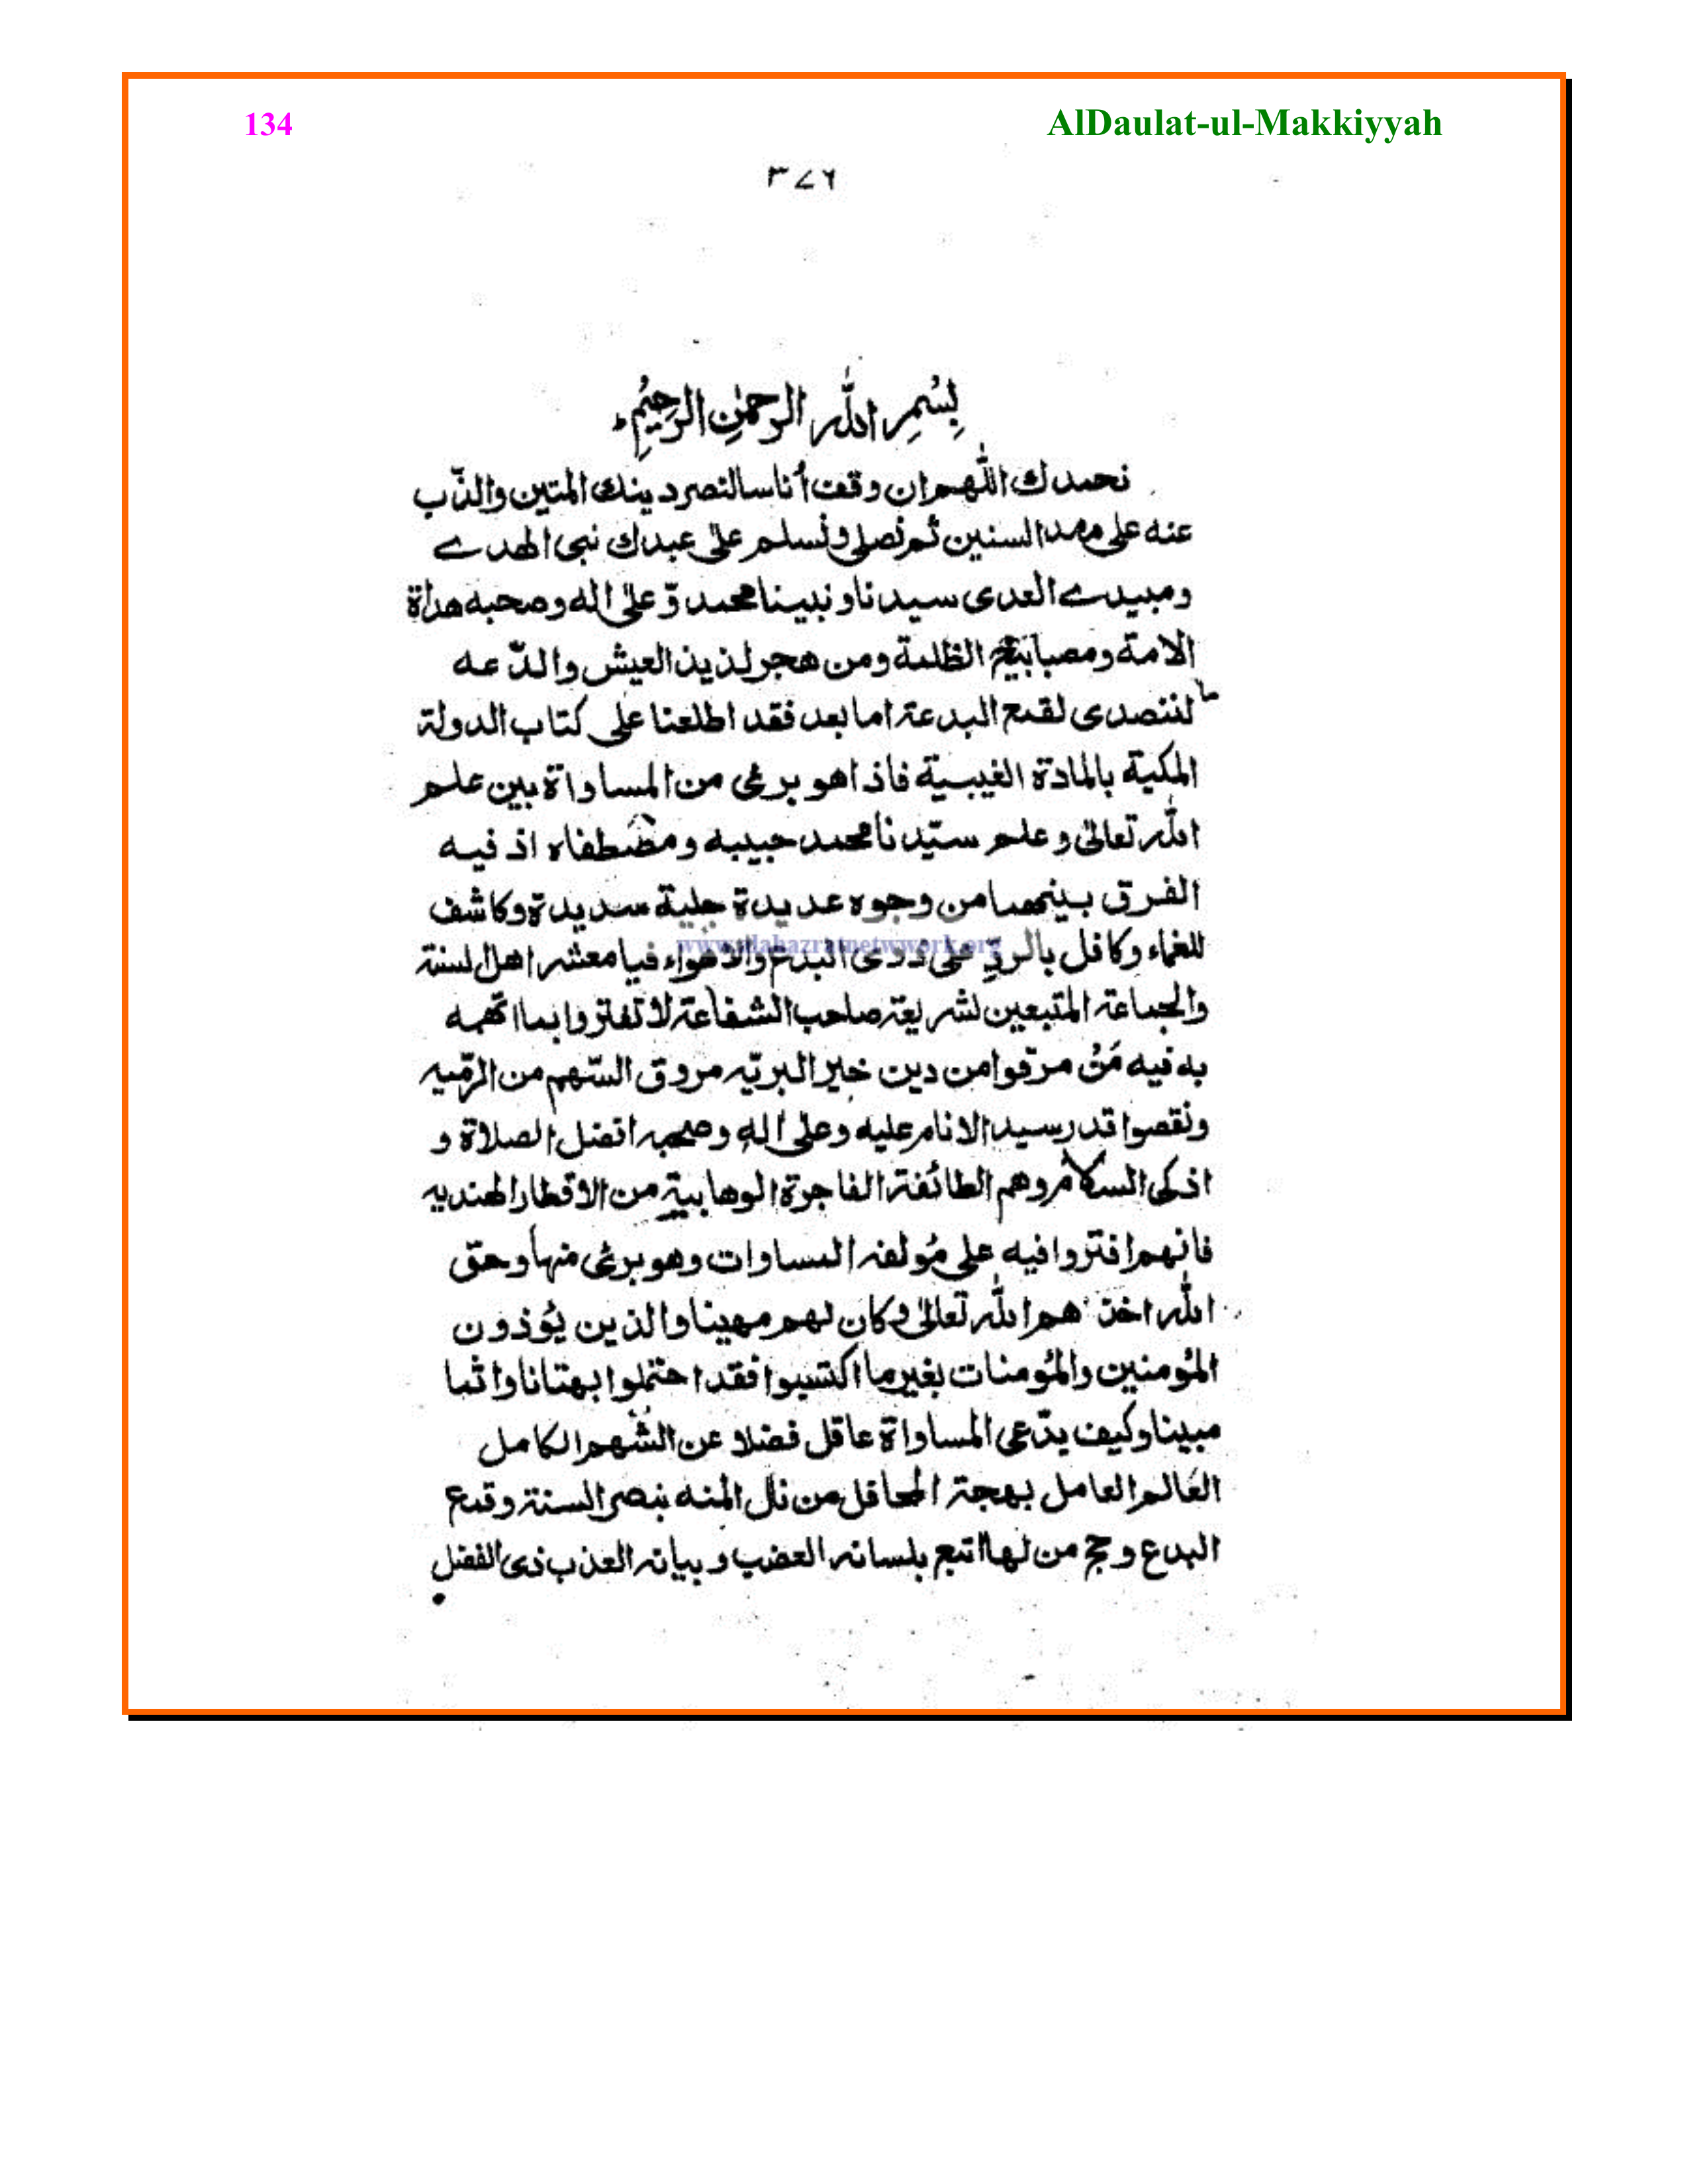 134 AlDaulat-ul-Makkiyyah
٣٧٦
بِسْمِ اللّٰہِ الرحمٰنِ الرحِیْمِ
نحمدك اللّٰهم ان وقفت أناسا لنصر دينك المتين والذّب
عنه على ممد السنين ثم نصلى ونسلم على عبدك نبى الهدے
ومبيدے العدى سيدنا ونبينا محمد وّ على اله وصحبه هداة
الامة ومصابيح الظلمة ومن هجر لذيذ العيش والدّعه
لنتصدى لقمع البدعة اما بعد فقد اطلعنا على كتاب الدولة
المكية بالمادة الغيبية فاذا هو برئ من المساواة بين علم
اللّٰه تعالىٰ وعلم سيّدنا محمد حبيبه ومصطفاه اذ فيه
الفرق بينهما من وجوه عديدة جلية سديدة وكاشف
للغماء وكافل بالردِّ على ذوى البدع والاهواء فيا معشر اهل السنة
www.alahazratnetwork.org
والجماعة المتبعين لشريعة صاحب الشفاعة لا تغتروا بما اتهمه
به فيه مَنْ مرقوا من دين خير البريّه مروق السّهم من الرّميه
ونقصوا قدر سيد الانام عليه وعلى اله وصحبه افضل الصلاة و
اذكى السلام وهم الطائفة الفاجرة الوهابية من الاقطار الهنديه
فانهم افتروا فيه على مُولفه المساوات وهو برئ منها وحقّ
اللّٰه اخذهم اللّٰه تعالىٰ وكان لهم مهينا والذين يُؤذون
المُؤمنين والمُؤمنات بغير ما اكتسبوا فقد احتملوا بهتانا واثما
مبينا وكيف يدّعى المساواة عاقل فضلا عن الشّهم الكامل
العالم العامل بهجة المحافل من نال المنه بنصر السنة وقمع
البدع وحج من لها اتبع بلسانه العضب وبيانه العذب ذى الفضل